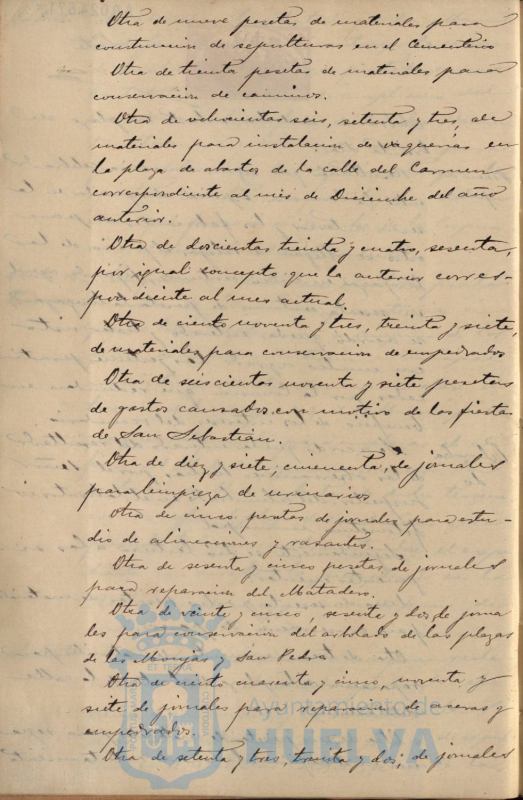 Otra de nueve pesetas de materiales para
construccion de sepulturas en el Cementerio
Otra de treinta pesetas de materiales para
conservacion de caminos.
Otra de ochocientas seis, setenta y tres, de
materiales para instalacion de vaquerias en
la plaza de abastos de la calle del Carmen
correspondiente al mes de Diciembre del año
anterior.
Otra de doscientas treinta y cuatro, sesenta,
por igual concepto que la anterior corres-
pondiente al mes actual,
Otra de ciento noventa y tres, treinta y siete,
de materiales para conservacion de empedrados
Otra de seiscientas noventa y siete pesetas
de gastos causados con motivo de las fiestas
de San Sebastian.
Otra de diez y siete, cincuenta, de jornales
para limpieza de urinarios
Otra de cinco pesetas de jornales para estu-
dio de alineaciones y rasantes.
Otra de sesenta y cinco pesetas de jornales
para reparacion del Matadero.
Otra de veinte y cinco, sesenta y dos de jorna
les para conservacion del arbolado de las plazas
de las Monjas y San Pedro
Otra de ciento cuarenta y cinco, noventa y
siete de jornales para reparacion de aceras y
empedrados.
Otra de setenta y tres, treinta y dos, de jornales
Ayuntamiento de
HUELVA